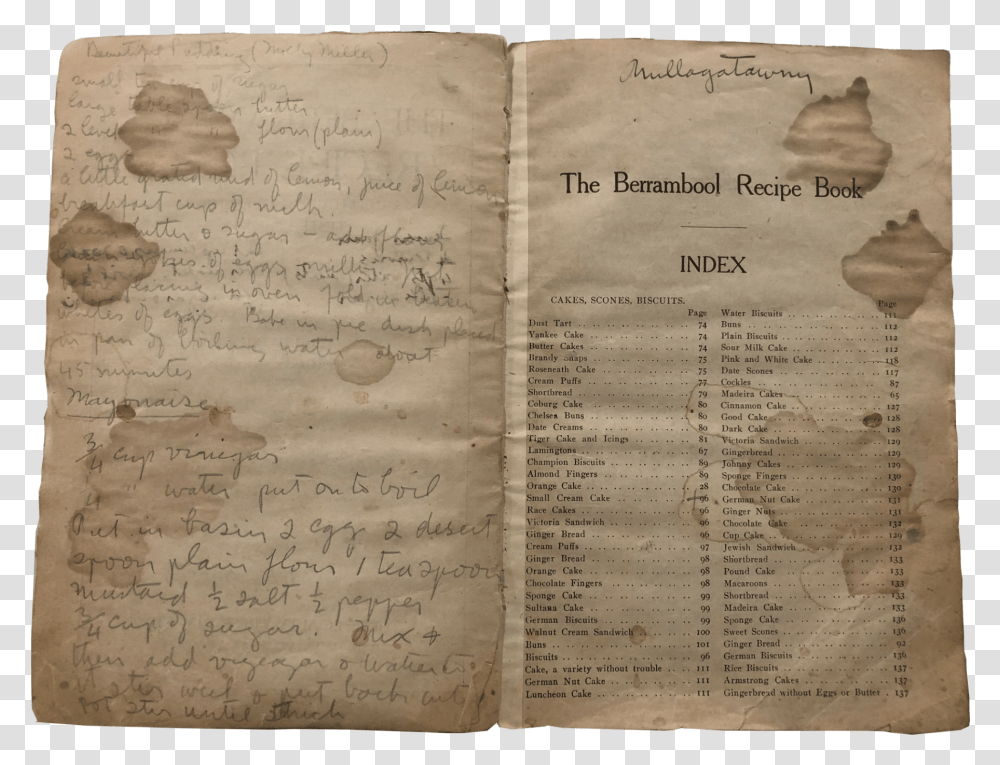 Beautiful Pudding (Molly Miller)
small of sugar
large table spoon butter
2 level " " flour (plain)
2 eggs
a little grated rind of lemon, juice of lemon
breakfast cup of milk.
cream butter & sugar – add flour
of eggs, milk,
in oven fold in beaten
whites of eggs. Bake in pie dish placed
in pan of boiling water about
45 minutes
Mayonaise
3/4 cup vinegar
4 water put on to boil
Put in basin 2 egg 2 desert
spoon plain flour 1 teaspoon
mustard 1/2 salt 1/2 pepper
3/4 cup of sugar. Mix &
then add vinegar & water, to
it stir well & put back
stir until thick
Mullagatawny
The Berrambool Recipe Book
INDEX
CAKES, SCONES, BISCUITS.
Page
Dust Tart 74
Yankee Cake 74
Butter Cakes 74
Brandy Snaps 75
Roseneath Cake 75
Cream Puffs 77
Shortbread 79
Coburg Cake 80
Chelsea Buns 80
Date Creams 80
Tiger Cake and Icings 81
Lamingtons 67
Champion Biscuits 89
Almond Fingers 89
Orange Cake 28
Small Cream Cake 96
Race Cakes 96
Victoria Sandwich 96
Ginger Bread 96
Cream Puffs 97
Ginger Bread 98
Orange Cake 98
Chocolate Fingers 98
Sponge Cake 99
Sultana Cake 99
German Biscuits 99
Walnut Cream Sandwich 100
Buns 101
Biscuits 96
Cake, a variety without trouble 111
German Nut Cake 111
Luncheon Cake 111
Page
Water Biscuits 111
Buns 112
Plain Biscuits 112
Sour Milk Cake 112
Pink and White Cake 118
Date Scones 117
Cockles 87
Madeira Cakes 65
Cinnamon Cake 127
Good Cake 128
Dark Cake 128
Victoria Sandwich 129
Gingerbread 129
Johnny Cakes 129
Sponge Fingers 130
Chocolate Cake 130
German Nut Cake 131
Ginger Nuts 131
Chocolate Cake 132
Cup Cake 129
Jewish Sandwich 132
Shortbread 133
Pound Cake 133
Macaroons 133
Shortbread 133
Madeira Cake 133
Sponge Cake 136
Sweet Scones 136
Ginger Bread 92
German Biscuits 136
Rice Biscuits 137
Armstrong Cakes 137
Gingerbread without Eggs or Butter 137